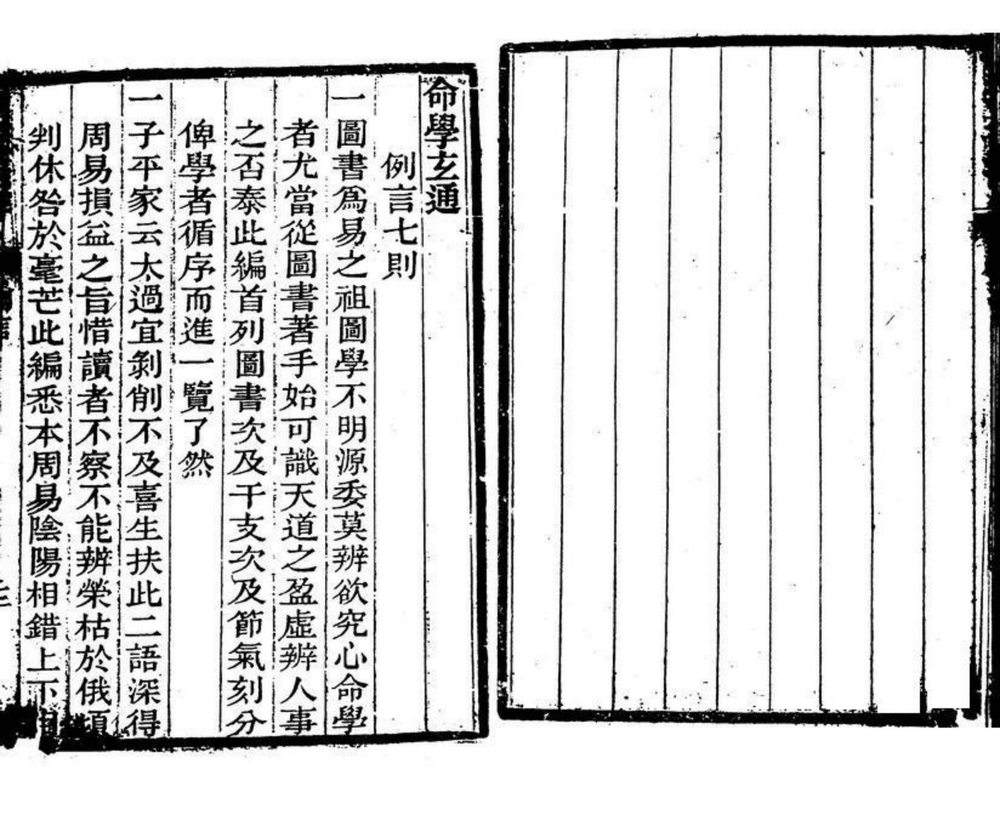 命學玄通
例言七則
一圖書爲易之祖圖學不明源委莫辨欲究心命學
者尤當從圖書著手始可識天道之盈虛辨人事
之否泰此編首列圖書次及干支次及節氣刻分
俾學者循序而進一覽了然
一子平家云太過宜剝削不及喜生扶此二語深得
周易損益之旨惜讀者不察不能辨榮枯於俄頃
判休咎於毫芒此編悉本周易陰陽相錯上下